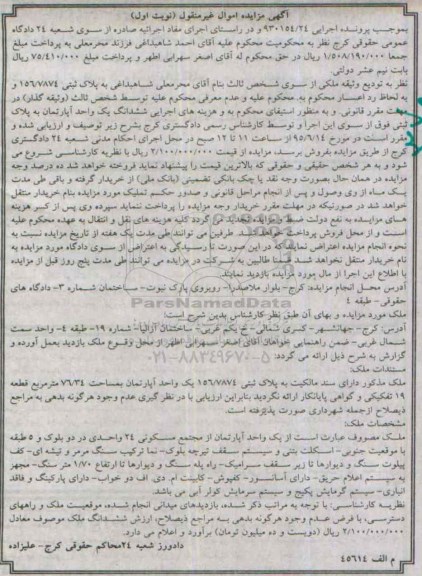 آگهی مزایده اموال غیرمنقول (نوبت اول)
بموجب پرونده اجرایی ۹۳۰۱۵۴/۲۴ و در راستای اجرای مفاد اجرائیه صادره از سوی شعبه ۲۴ دادگاه
عمومی حقوقی کرج نظر به محکومیت محکوم علیه آقای احمد شاهبداغی فرزند محرمعلی به پرداخت مبلغ
جمعا ۱/۵۰۸/۱۹۰/۰۰۰ ریال در حق محکوم له آقای اصغر سهرابی اطهر و پرداخت مبلغ ۷۵/۴۱۰/۰۰۰ ریال
بابت نیم عشر دولتی.
نظر به تودیع وثیقه ملکی از سوی شخص ثالث بنام آقای محرمعلی شاهبداغی به پلاک ثبتی ۱۵۶/۷۸۷۴ و
به لحاظ رد اعسار محکوم به محکوم علیه و عدم معرفی محکوم علیه توسط شخص ثالث (وثیقه گذار) در
مهلت مقرر قانونی و به منظور استیفای محکوم به و هزینه های اجرایی ششدانگ یک واحد آپارتمان به پلاک
ثبتی فوق از سوی این اجرا و توسط کارشناس رسمی دادگستری کرج بشرح زیر توصیف و ارزیابی شده و
مقرر است در مورخ ۹۵/۶/۱۴ از ساعت ۱۱ تا ۱۲ صبح در محل اجرای احکام مدنی شعبه ۲۴ دادگستری
کرج از طریق مزایده بفروش برسد، مزایده از قیمت ۲/۱۰۰/۰۰۰/۰۰۰ ریال با نظریه کارشناسی شروع می
شود و به هر شخص حقیقی و حقوقی که بالاترین قیمت را پیشنهاد نماید فروخته خواهد شد ده درصد وجه
مزایده در همان حال بصورت وجه نقد یا چک بانکی تضمینی (بانک ملی) از خریدار گرفته و باقی طی مدت
یک ماه از وی وصول و پس از انجام مراحل قانونی و صدور حکم تملیک مورد مزایده بنام خریدار منتقل
خواهد شد در صورتیکه در مهلت مقرر خریدار وجه مزایده را پرداخت ننماید سپرده وی پس از کسر هزینه
های مزایده به نفع دولت ضبط و مزایده تجدید می گردد کلیه هزینه های نقل و انتقال به عهده محکوم علیه
است و از محل فروش پرداخت خواهد شد. طرفین می توانند طی مدت یک هفته از تاریخ مزایده نسبت به
نحوه انجام مزایده اعتراض نمایند که در این صورت تا رسیدگی به اعتراض از سوی دادگاه مورد مزایده به
نام خریدار منتقل نخواهد شد ضمنا طالبین به شرکت در مزایده می توانند طی مدت پنج روز قبل از مزایده
با اطلاع این اجرا از مال مورد مزایده بازدید نمایند.
آدرس محل انجام مزایده: کرج- بلوار ملاصدرا- روبروی پارک نبوت- ساختمان شماره ۳- دادگاه های
حقوقی- طبقه ۴
ملک مورد مزایده و بهای آن طبق نظر کارشناس بدین شرح است:
آدرس: کرج- جهانشهر- کسری شمالی- خ یکم غربی- ساختمان آزالیا- شماره ۱۹- طبقه ۴- واحد سمت
شمال غربی- ضمن راهنمایی خواهان آقای اصغر سهرابی اطهر از محل وقوع ملک بازدید بعمل آورده و
گزارش به شرح ذیل ارائه می گردد:
مستندات ملک:
ملک مذکور دارای سند مالکیت به پلاک ثبتی ۱۵۶/۷۸۷۴ یک واحد آپارتمان بمساحت ۷۶/۳۴ مترمربع قطعه
۱۹ تفکیکی و گواهی پایانکار ارائه نگردید بنابراین ارزیابی با در نظر گیری عدم وجود هرگونه بدهی به مراجع
ذیصلاح ازجمله شهرداری صورت پذیرفته است.
مشخصات ملک:
ملک مصروف عبارت است از یک واحد آپارتمان از مجتمع مسکونی ۲۴ واحدی در دو بلوک و ۵ طبقه
با موقعیت جنوبی- اسکلت بتنی و سیستم سقف تیرچه بلوک- نما ترکیب سنگ مرمر و تیشه ای- کف
پیلوت سنگ و دیوارها تا زیر سقف سرامیک- راه پله سنگ و دیوارها تا ارتفاع ۱/۷۰ متر سنگ- مجهز
به سیستم اعلام حریق- دارای آسانسور- کفپوش- کابینت ام. دی. اف دو خواب- دارای پارکینگ و فاقد
انباری- سیستم گرمایش پکیج و سیستم سرمایش کولر آبی می باشد.
نظریه کارشناسی: با توجه به مراتب ذکر شده، بازدیدهای میدانی انجام شده، موقعیت ملک و راههای
دسترسی، با فرض عدم وجود هرگونه بدهی به مراجع ذیصلاح، ارزش ششدانگ ملک موصوف معادل
۲/۱۰۰/۰۰۰/۰۰۰ ریال (دویست و ده میلیون تومان) برآورد و اعلام می دارد.
دادورز شعبه ۲۴ محاکم حقوقی کرج- علیزاده
م الف ۴۵۶۱۴
ParsNamadData
۰۲۱-۸۸۳۴۹۶۷۰-۵